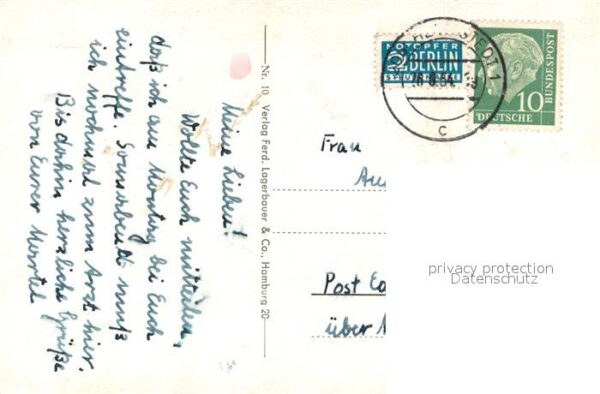 Meine Lieben!
Wollte Euch mitteilen,
daß ich am Montag bei Euch
eintreffe. Sonnabend muß
ich nochmal zum Arzt hier.
Bis dahin herzliche Grüße
von Eurer
Nr. 10 Verlag Ferd. Lagerbauer & Co., Hamburg 20
NOTOPFER
2 BERLIN
STEUERMARKE
c
10
DEUTSCHE
BUNDESPOST
Frau
Post
über
privacy protection
Datenschutz